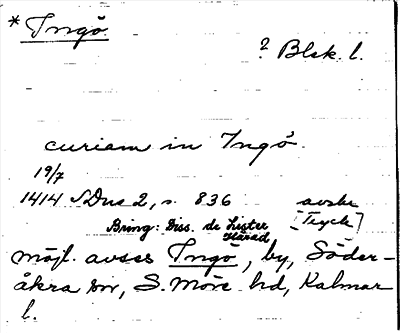 * Ingö
? Blek. l.
curiam in Ingö
19/7
1414 SDns 2, s. 836 avskr
Bring: Diss. de Lister [Tryck]
Härad
möjl. avses Ingo, by, Söder-
åkra sn, S. Möre hd, Kalmar
l.